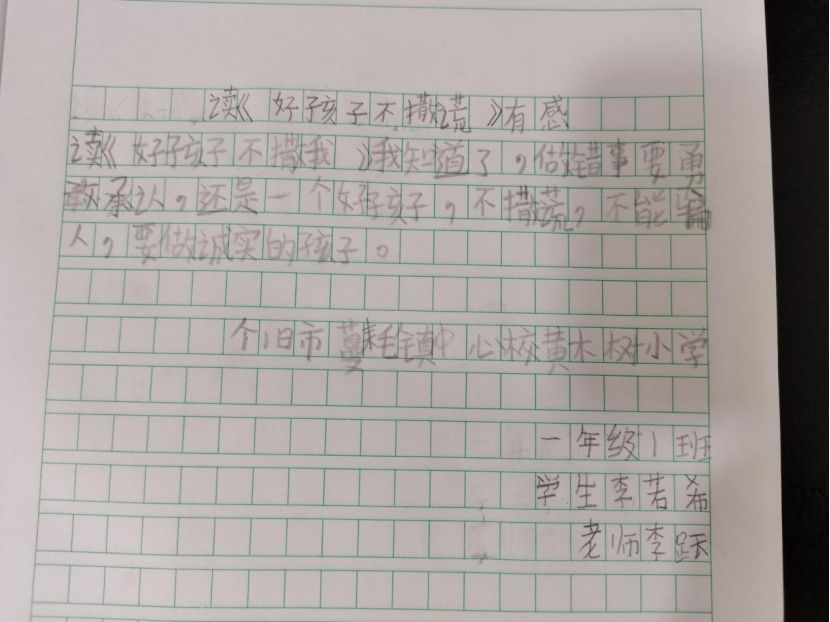 读《好孩子不撒谎》有感
读《好孩子不撒我》我知道了，做错事要勇
敢承认，还是一个好孩子，不撒谎，不能骗
人，要做诚实的孩子。
个旧市蔓耗镇中心校黄木树小学
一年级1班
学生李若希
老师李跃